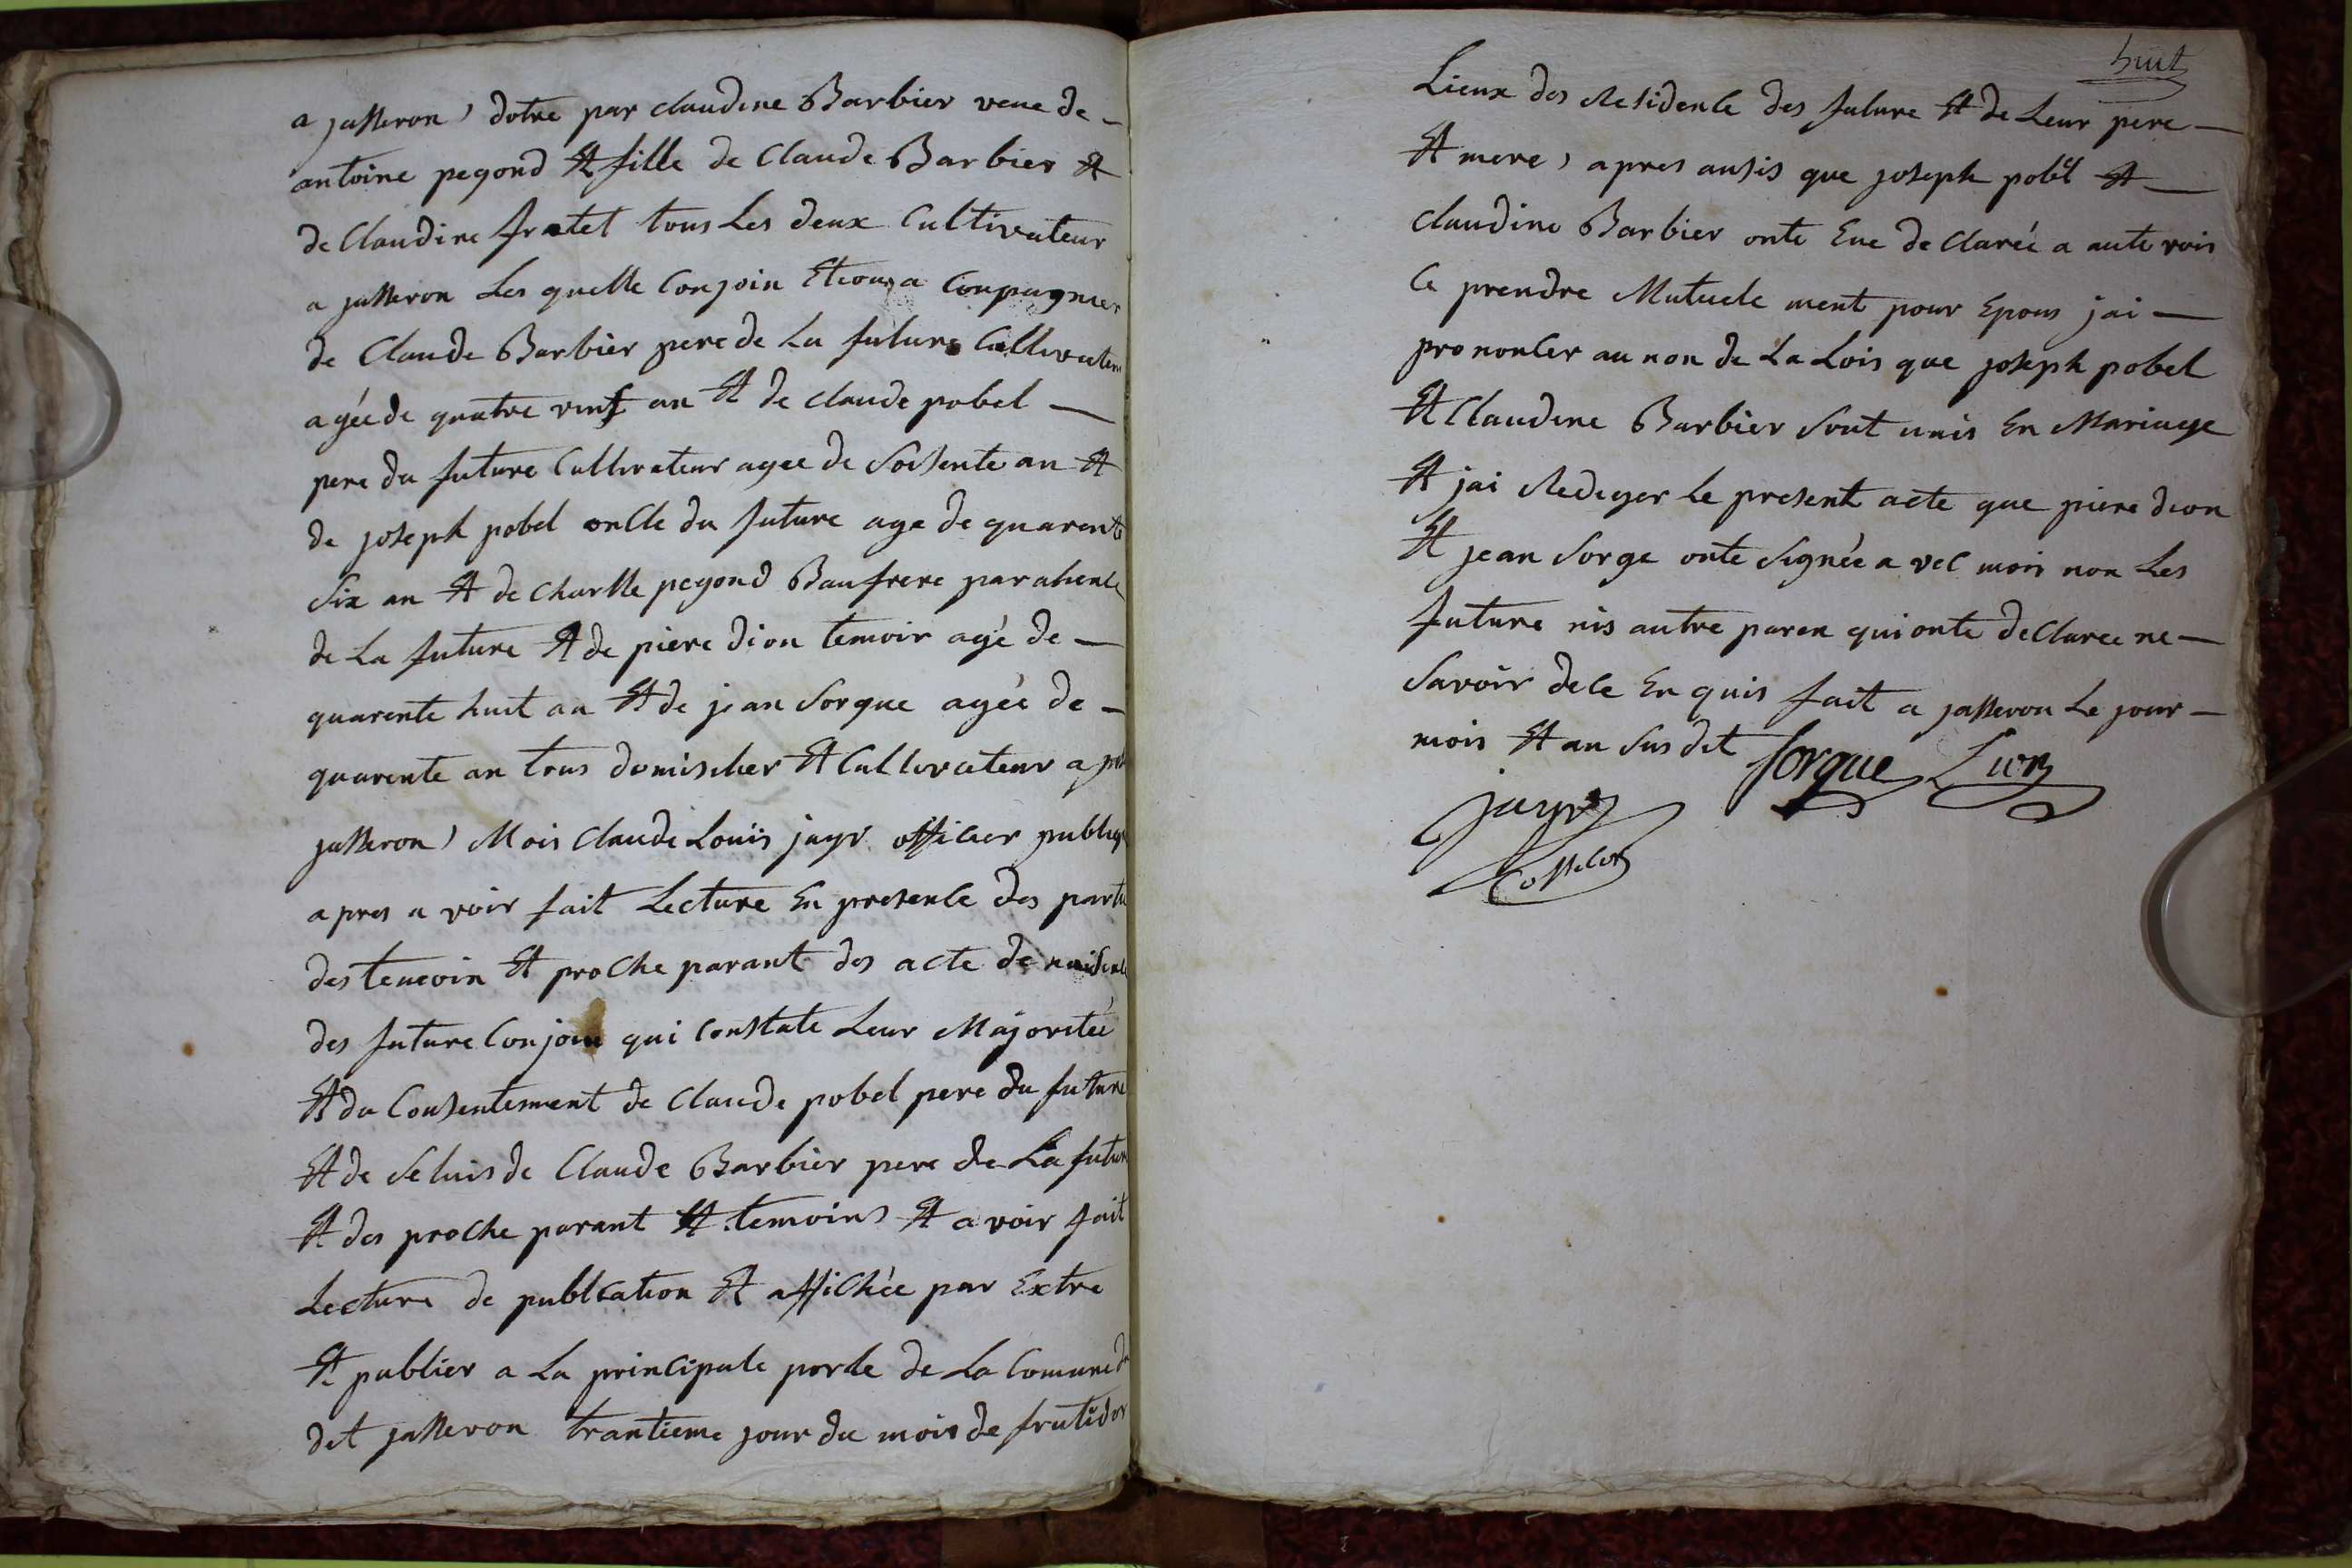 a jasseron, dotre par claudine Barbier veue de -
antoine pegond Et fille de Claude Barbier Et
de Claudine fratet tous Les deux Cultivateur
a jasseron Les quelle Conjoin Etion a Conpagnier
de Claude Barbier pere de La future Cultivateur
agée de quatre vint an Et de claude pobel —
pere du future Cultivateur agee de Soisente an Et
de joseph pobel oncle du future age de quarente
Six an Et de Charlle pegond Baufrere par alience
de La future Et de piere dion temoir agé de —
quarente huit an Et de jean Sorgue agée de -
quarente an tous domicilier Et Cultivateur a
jasseron, Mois Claude Louis jayr officier publiq
apres a voir fait Lecture En presence des partie
des temoin Et proche parant des acte de naisence
des future Conjoin qui Constate Leur Majoritée
Et du Consentement de Claude pobel pere du future
Et de Seluis de Claude Barbier pere de La future
Et des proche parant Et temoins Et a voir fait
Lecture de publication Et affichée par Extre
Et publier a La principale porte de La Comune du
dit jasseron trantieme jour du mois de frutidor
huit
Lieux des Residence des future Et de Leur pere —
Et mere, apres ausis que joseph pobel Et —
claudine Barbier onte Eue declarée a aute vois
Ce prendre Mutuele ment pour Epous jai —
prononcer au non de La Lois que joseph pobel
Et Claudine Barbier Sont unis En Mariage
Et jai Rediger Le present acte que piere dion
Et jean Sorge onte Signée a vec mois non Les
future nis autre paren qui onte declaree ne —
Savoir de ce En quis fait a jasseron Le jour —
mois Et an Sus dit Sorgue
jayr
officier